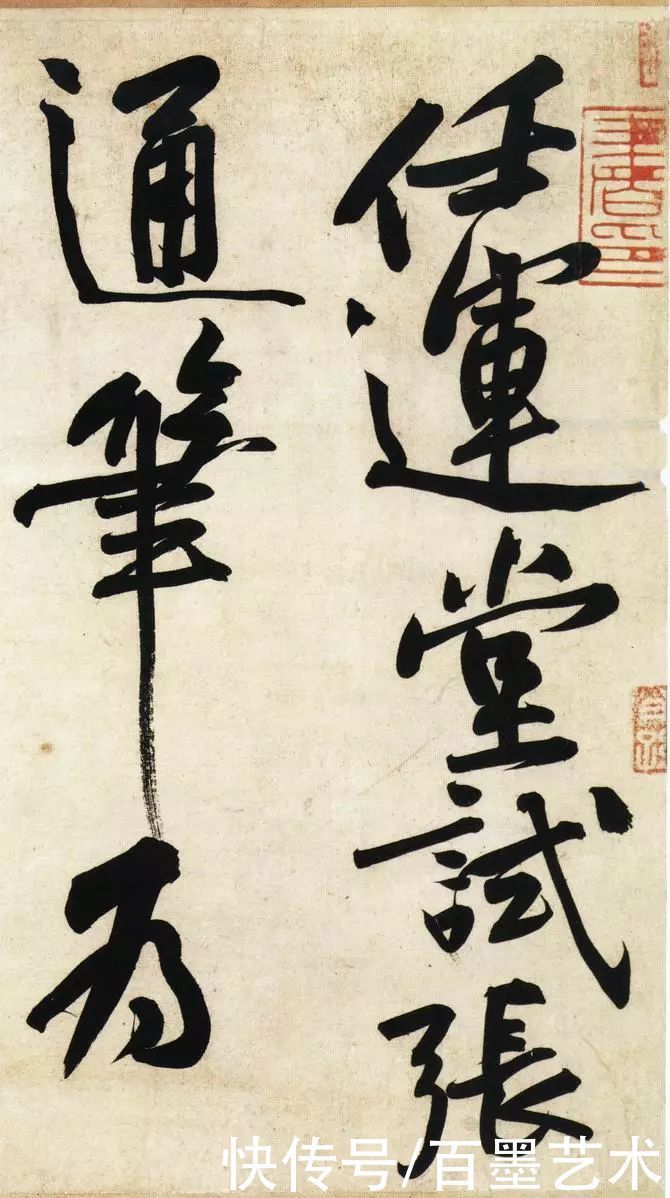 任運堂試張
通筆為
快传号/百墨艺术